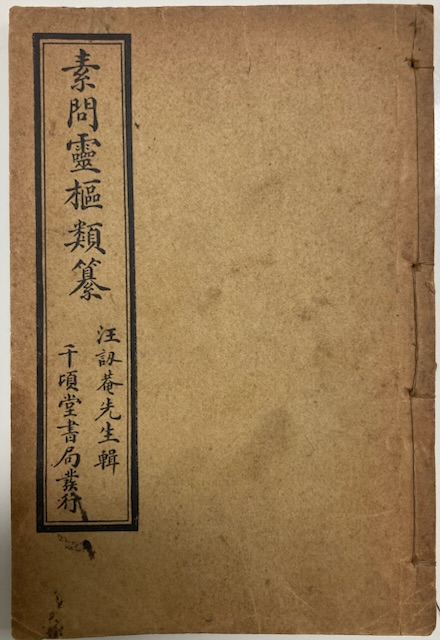 素問靈樞類纂
汪訒菴先生輯
千頃堂書局發行